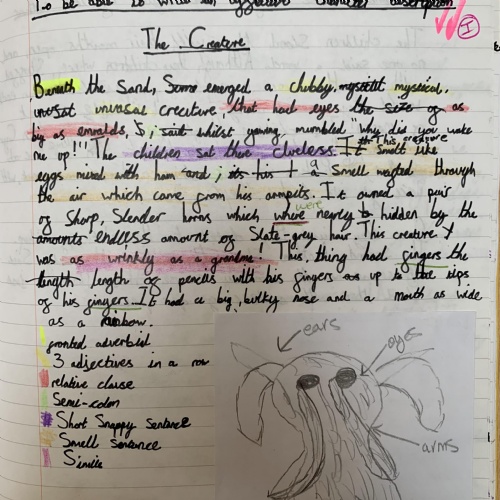 To be able to write an effective character description
The Creature
Beneath the Sand, Sams emerged a chubby, mystical,
unusual creature, that had eyes as
big as emralds, S; sait whilst yawing, mumbled "Why did you wake
me up!!" The children sat there clueless. It smelt like
eggs mixed with ham and; a smell wafted through
the air which came from his armpits. It owned a pair
of Sharp, Slender horns which were nearly hidden by the
endless amount of Slate-grey hair. This creature
was as wrinkly as a grandma! This, thing had gingers the
length of pencils with his gingers up to the tips
of his gingers. It had a big, bulky nose and a mouth as wide
as a rainbow.
fronted adverbial
3 adjectives in a row
relative clause
Semi-colon
Short Snappy Sentence
Smell sentence
Simile
ears
eyes
arms